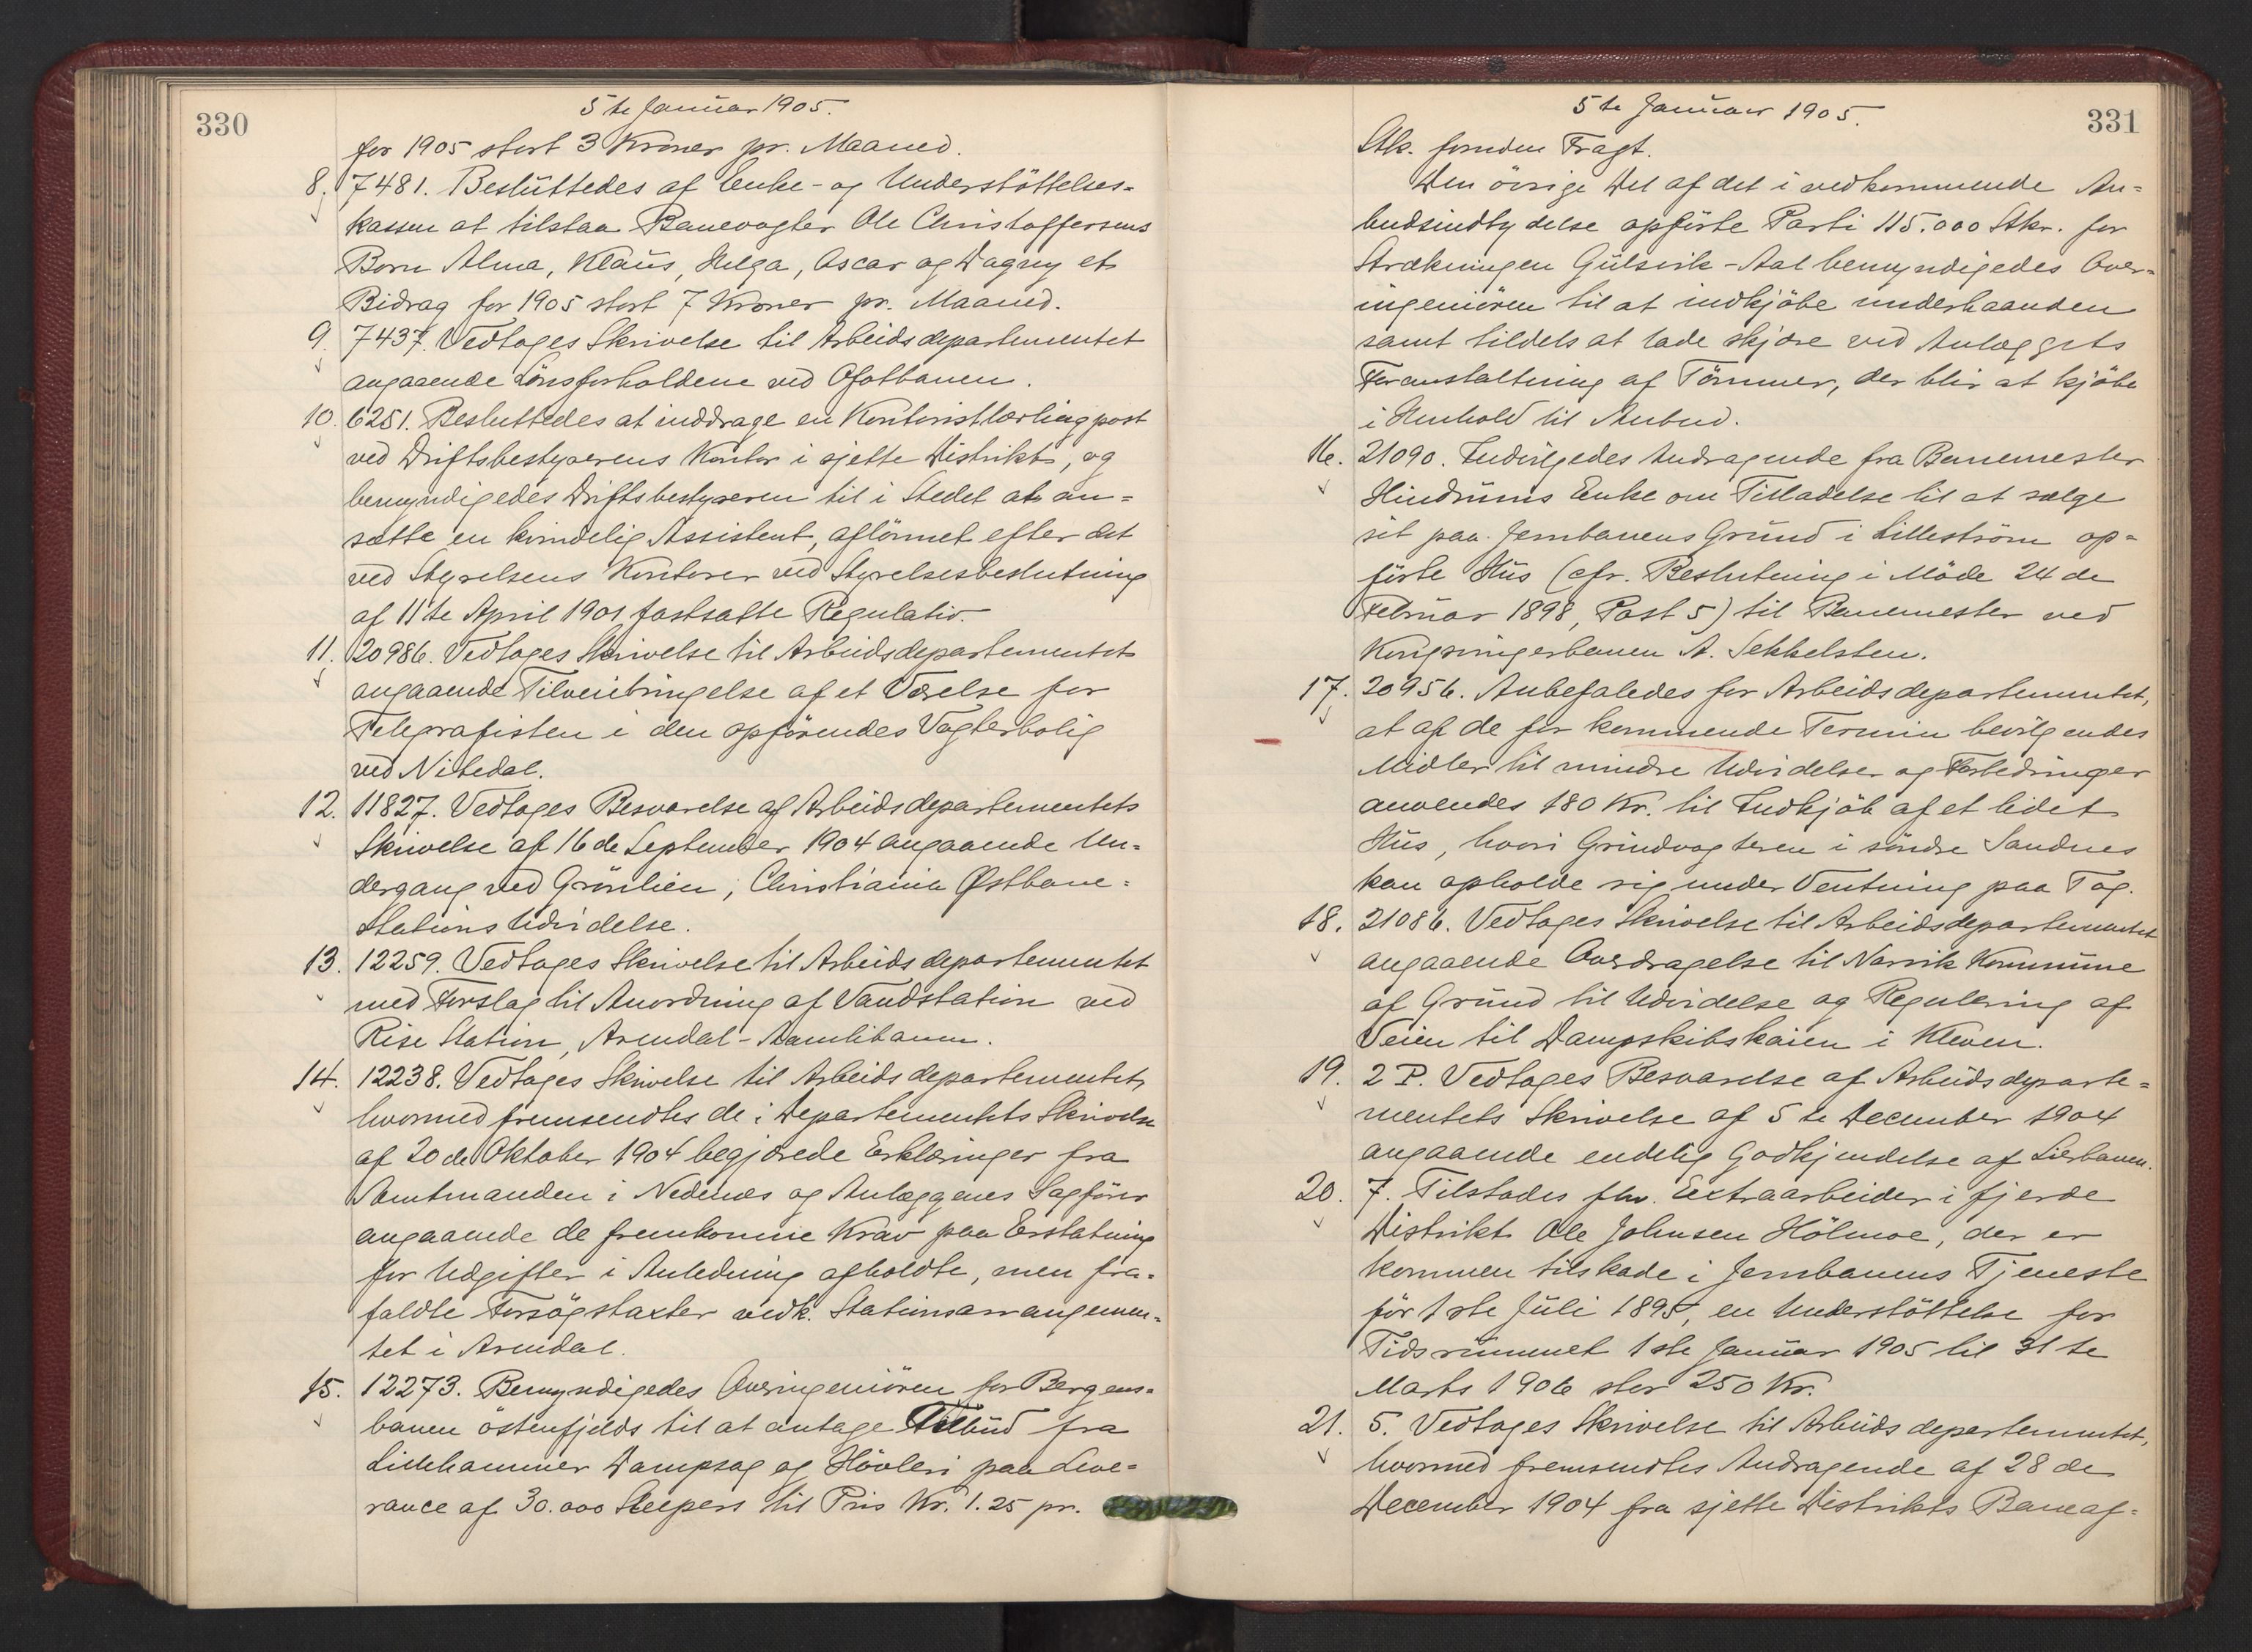 330
5te Januar 1905.
for 1905 stort 3 Kroner pr. Maaned.
8. 7481. Besluttedes af Enke- og Understöttelses-
kassen at tilstaa Banevogter Ole Christoffersens
Born Alma, Klaus, Helga, Oscar og Dagny et
Bidrag for 1905 stort 7 Kroner pr. Maaned.
9. 7437. Vedtages Skrivelse til Arbeidsdepartementet
angaaende Lönsforholdene ved Ofotbanen.
10. 6251. Besluttedes at inddrage en Kontoristlærlingpost
ved Driftsbestyrerens Kontor i sjette Distrikt, og
bemyndigedes Driftsbestyreren til i Stedet at an-
sætte en kvindelig Assistent, aflönnet efter det
ved Styrelsens Kontorer ved Styrelsesbeslutning
af 11te April 1901 fastsatte Regulativ.
11. 20986. Vedtages Skrivelse til Arbeidsdepartementet
angaaende Tilveiebringelse af et Værelse for
Telegrafisten i den opförendes Vogterbolig
ved Nitedal.
12. 11827. Vedtages Besvarelse af Arbeidsdepartementets
Skrivelse af 16de September 1904 angaaende Un-
dergang ved Grönlien, Christiania Østbane-
stations Udvidelse.
13. 12259. Vedtages Skrivelse til Arbeidsdepartementet
med Forslag til Anordning af Vandstation ved
Rise Station, Arendal-Aamlibanen.
14. 12238. Vedtages Skrivelse til Arbeidsdepartementet,
hvormed fremsendtes de i Departementets Skrivelse
af 20de Oktober 1904 begjærede Erklæringer fra
Amtmanden i Nedenes og Anlæggenes Sagförer
angaaende de fremkomne Krav paa Erstatning
for Udgifter i Anledning afholdte, men fra-
faldte Forsögstaxter vedk. Stationsarrangemen-
tet i Arendal.
15. 12273. Bemyndigedes Overingeniören for Bergens-
banen östenfjelds til at antage Tilbud fra
Lillehammer Dampsag og Hövleri paa Leve-
rance af 30.000 Sleepers til Pris Kr. 1.25 pr.
331
5te Januar 1905.
Stk. foruden Fragt.
Den övrige Del af det i vedkommende An-
budsindbydelse opförte Parti 115.000 Stkr. for
Strækningen Gulsvik-Aal bemyndigedes Over-
ingeniören til at indkjöbe underhaanden
samt tildels at lade skjære ved Anlæggets
Foranstaltning af Tömmer, der blir at kjöbe
i Henhold til Anbud.
16. 21090. Indvilgedes Andragende fra Banemester
Hindrums Enke om Tilladelse til at sælge
sit paa Jernbanens Grund i Lilleström op-
förte Hus (cfr. Beslutning i Möde 24de
Februar 1898, Post 5) til Banemester ved
Kongsvingerbanen A. Sekkelsten.
17. 20956. Anbefaledes for Arbeidsdepartementet,
at af de for kommende Termin bevilgendes
Midler til mindre Udvidelser og Forbedringer
anvendes 180 Kr. til Indkjöb af et lidet
Hus, hvori Grindvogteren i söndre Sandnes
kan opholde sig under Ventning paa Tog.
18. 21086. Vedtages Skrivelse til Arbeidsdepartementet
angaaende Overdragelse til Narvik Kommune
af Grund til Udvidelse og Regulering af
Veien til Dampskibskaien i Kleven.
19. 2 P. Vedtages Besvarelse af Arbeidsdeparte-
mentets Skrivelse af 5te December 1904
angaaende endelig Godkjendelse af Lierbanen.
20. 7. Tilstodes fhv. Extraarbeider i fjerde
Distrikt Ole Johnsen Hölmoe, der er
kommen tilskade i Jernbanens Tjeneste
för 1ste Juli 1895, en Understöttelse for
Tidsrummet 1ste Januar 1905 til 31te
Marts 1906 stor 250 Kr.
21. 5. Vedtages Skrivelse til Arbeidsdepartementet,
hvormed fremsendtes Andragende af 28de
December 1904 fra sjette Distrikts Baneaf-